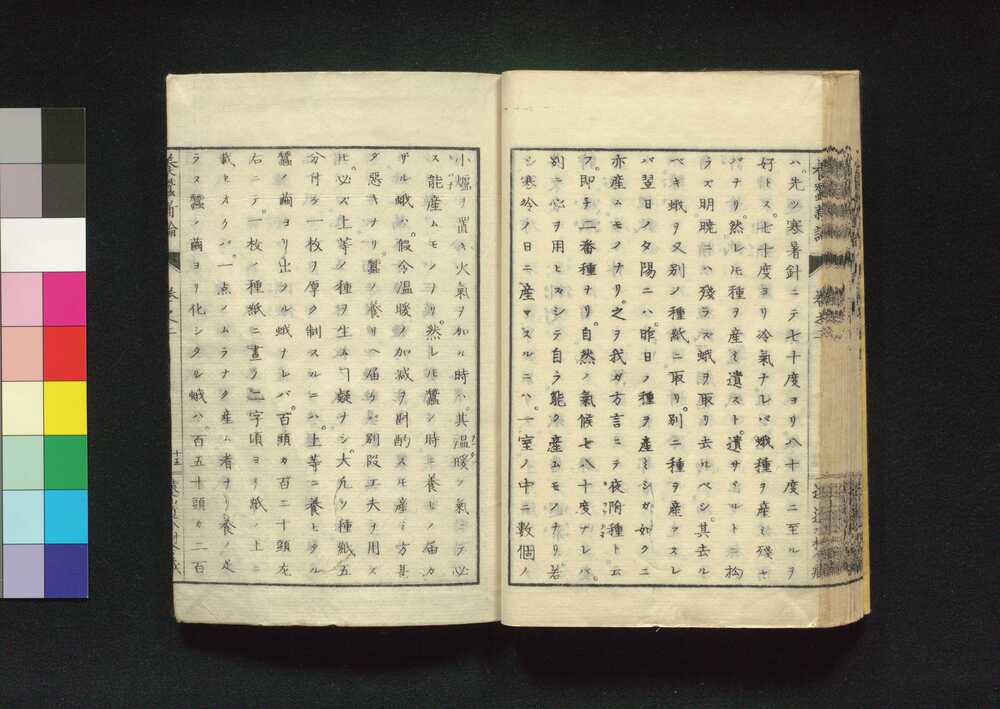 ハ。先ツ寒暑針ニテ七十度ヨリ八十度ニ至ルヲ
好トス。七十度ヨリ冷氣ナレバ蛾種ヲ産ミ殘サ
バナリ。然レ𪜈種ヲ産ミ遺スト。遺サヾルト ハ松
ラズ明曉ニハ殘ラズ蛾ヲ取リ去ルベシ。其去ル
ベキ蛾ヲ又別ノ種紙ニ取リ。別ニ種ヲ産マスレ
バ翌日ノ夕陽ニハ。昨日ノ種ヲ産ミシガ如クニ
亦産ムモノナリ。之ヲ我ガ方言ニテ夜附種ト云
フ。即チ二番種ナリ。自然ノ氣候七八十度ナレバ。
別ニ心ヲ用ヒズシテ自ラ能ク産ムモノナリ若
シ寒冷ノ日ニ産マスルニハ。一室ノ中ニ數個ノ
小爐ヲ置キ火氣ヲ加ル時ハ。其温暖ノ氣ニテ必
ス能産ムモノナリ。然レ𪜈蠶ノ時ニ養ヒノ届カ
ザル蛾ハ。假令温暖ノ加减ヲ斟酌スルモ産ミ方甚
ダ惡キナリ。蠶ノ養リヘ届ケバ別段工夫ヲ用ズ
𪜈。必ズ上等ノ種ヲ生ム疑ヲシ。大凡ソ種紙五
分付ケ一枚ヲ厚ク制スルニハ。上等ニ養ヒタル
蠶ノ繭ヨリ出ヅル蛾ナレバ百頭カ百二十頭左
右ニテ。一枚ノ種紙ニ晝ノ二字頃ヨリ紙ノ上ニ
載セオクバ。一点ノムラナク産ム者ナリ養ノ足
ラズ蠶ノ繭ヨリ化シタル蛾ハ。百五十頭カ二百
十五